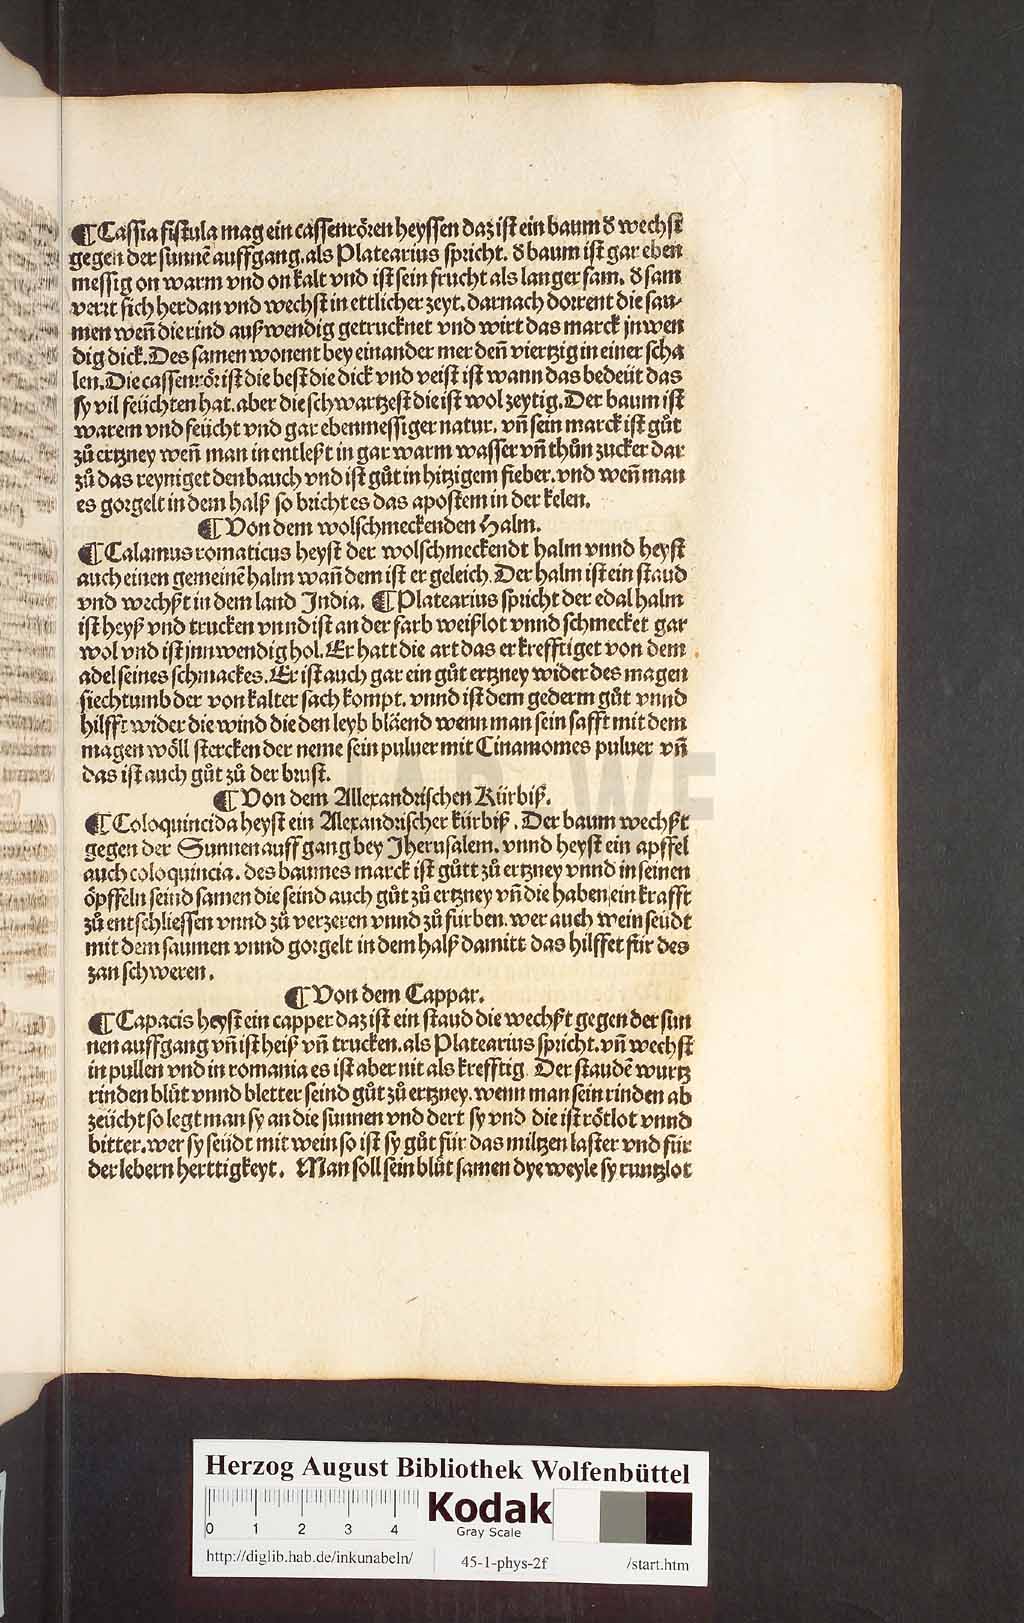 ¶ Cassia fistula mag ein cassenrören heyssen daz ist ein baum đ wechst
gegen der sunnē auffgang. als Platearius spricht. đ baum ist gar eben
messig on warm vnd on kalt vnd ist sein frucht als langer sam. đ sam
verrt sich herdan vnd wechst in ettlicher zeyt. darnach dorrent die sau-
men wen̄ die rind außwendig getrucknet vnd wirt das marck jnwen
dig dick. Des samen wonent bey einander mer den̄ viertzig in einer scha
len. Die cassenrör ist die best die dick vnd veist ist wann das bedeüt das
sy vil feüchten hat. aber die schwartzest die ist wol zeytig. Der baum ist
warem vnd feücht vnd gar ebenmessiger natur. vn̄ sein marck ist gůt
zů ertzney wen̄ man in entleßt in gar warm wasser vn̄ thůn zucker dar
zů das reyniget den bauch vnd ist gůt in hitzigem fieber. vnd wen̄ man
es gorgelt in dem halß so bricht es das apostem in der kelen.
¶ Von dem wolschmeckenden Halm.
¶ Calamus romaticus heyst der wolschmeckendt halm vnnd heyst
auch einen gemeinē halm wan̄ dem ist er geleich. Der halm ist ein staud
vnd wechßt in dem land India. ¶ Platearius spricht der edal halm
ist heyß vnd trucken vnnd ist an der farb weißlot vnnd schmecket gar
wol vnd ist jnnwendig hol. Er hatt die art das er krefftiget von dem
adel seines schmackes. Er ist auch gar ein gůt ertzney wider des magen
siechtumb der von kalter sach kompt. vnnd ist dem gederm gůt vnnd
hilfft wider die wind die den leyb bläend wenn man sein safft mit dem
magen wöll stercken der neme sein puluer mit Cinamomes puluer vn̄
das ist auch gůt zů der brust.
¶ Von dem Allexandrischen Kürbiß.
¶ Coloquincida heyst ein Alexandrischer kürbiß. Der baum wechßt
gegen der Sunnen auffgang bey Jherusalem. vnnd heyst ein apffel
auch coloquincia. des baumes marck ist gůtt zů ertzney vnnd in seinen
öpffeln seind samen die seind auch gůt zů ertzney vn̄ die haben ein krafft
zů entschliessen vnnd zů verzeren vnnd zů fürben. wer auch wein seüdt
mit dem saumen vnnd gorgelt in dem halß damitt das hilffet für des
zan schweren.
¶ Von dem Cappar.
¶ Capacis heyst ein capper daz ist ein staud die wechßt gegen der sun
nen auffgang vn̄ ist heiß vn̄ trucken. als Platearius spricht. vn̄ wechst
in pullen vnd in romania es ist aber nit als krefftig. Der staudē wurtz
rinden blüt vnnd bletter seind gůt zů ertzney. wenn man sein rinden ab
zeücht so legt man sy an die sunnen vnd dert sy vnd die ist rötlot vnnd
bitter. wer sy seüdt mit wein so ist sy gůt für das miltzen laster vnd für
der lebern herttigkeyt. Man soll sein blüt samen dye weyle sy runtzlot
HAB WF
Herzog August Bibliothek Wolfenbüttel
0 1 2 3 4
Kodak
Gray Scale
http://diglib.hab.de/inkunabeln/ 45-1-phys-2f /start.htm